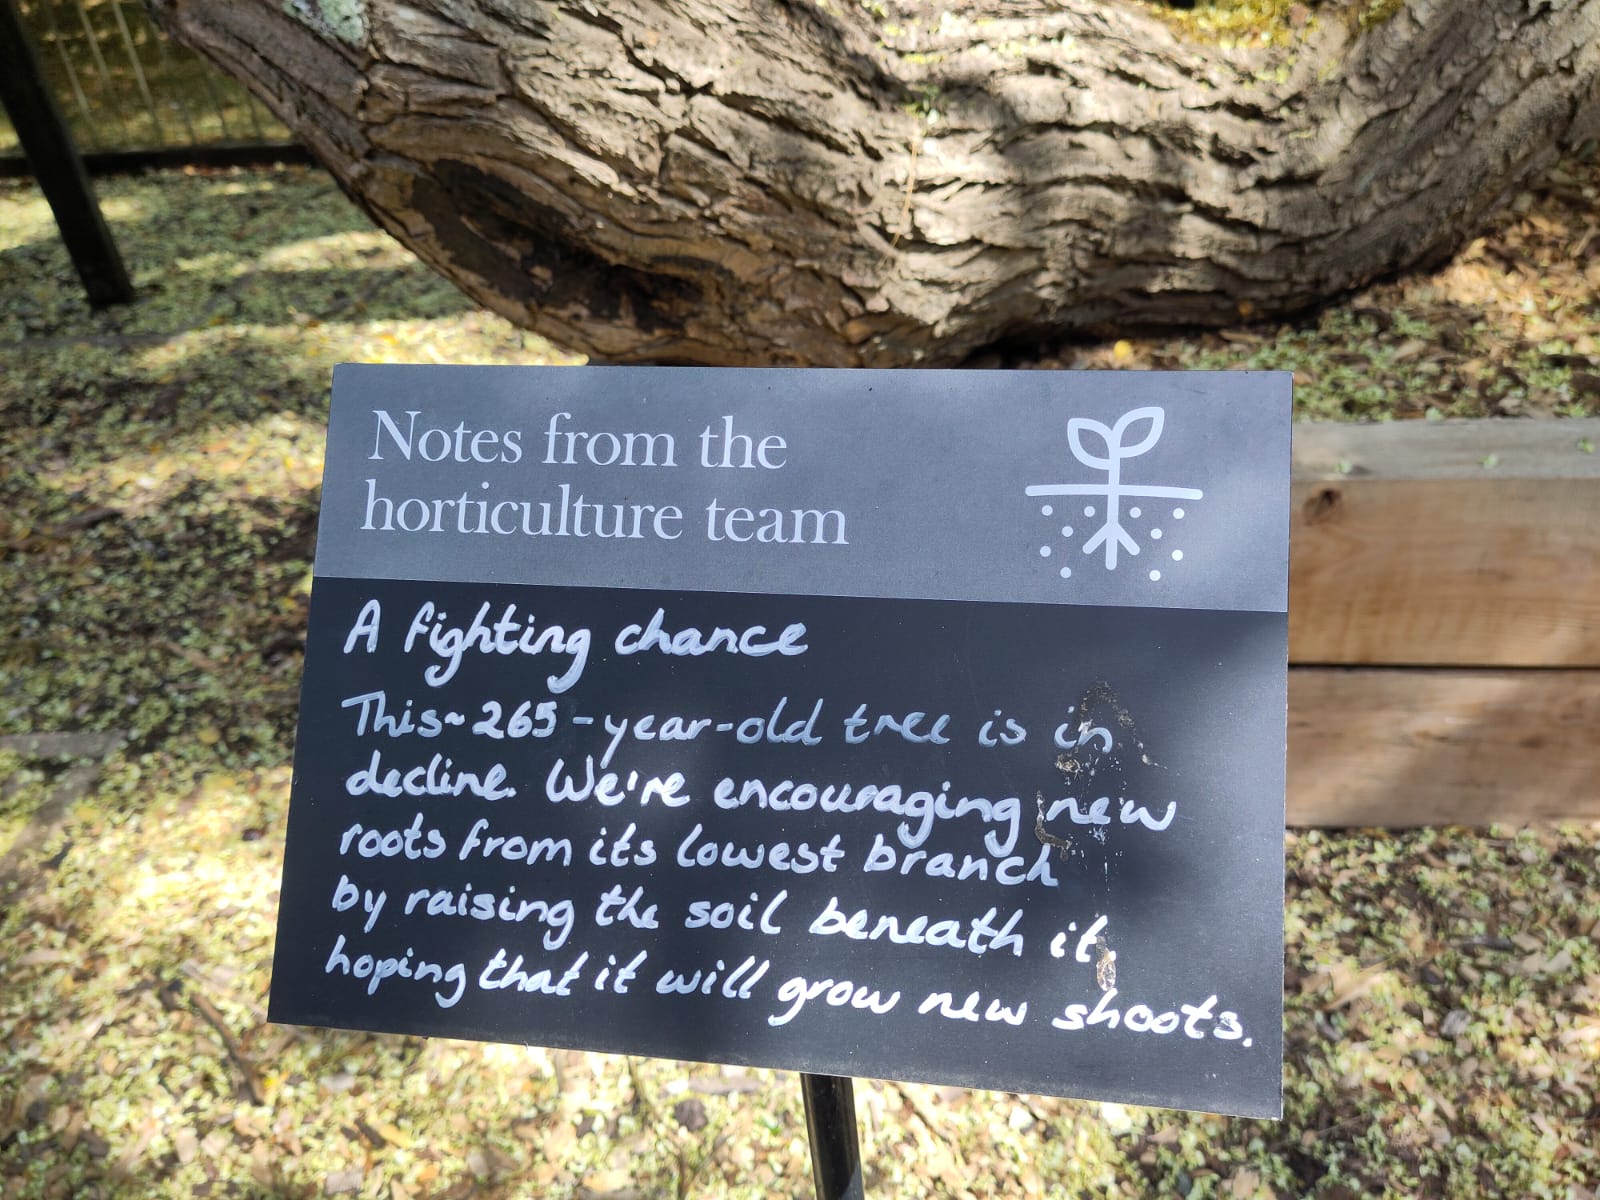 Notes from the
horticulture team
A fighting chance
This ~265-year-old tree is in
decline. We're encouraging new
roots from its lowest branch
by raising the soil beneath it,
hoping that it will grow new shoots.